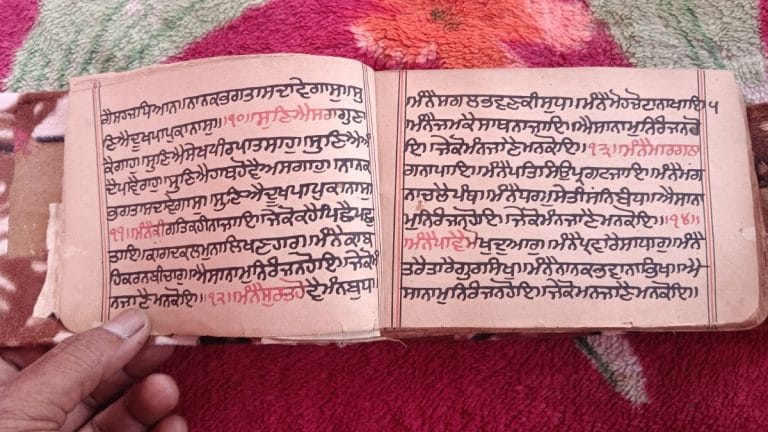 ਗੈਸਹਜਧਿਆਨ॥ਨਾਨਕਭਗਤਾਸਦਾਵੇਗਾਸੁ॥ਸੁ
ਣਿਐਦੂਖਪਾਪਕਾਨਾਸੁ॥੧੦॥ਸੁਣਿਐਸਰਾਗੁਣ
ਕੇਗਾਹ॥ਸੁਣਿਐਸੇਖਪੀਰਪਾਤਸਾਹੁ॥ਸੁਣਿਐਅੰ
ਧੇਪਾਵੈਰਾਹੁ॥ਸੁਣਿਐਹਾਥਹੋਵੈਅਸਗਾਹੁ॥ਨਾਨਕ
ਭਗਤਾਸਦਾਵੇਗਾਸੁ॥ਸੁਣਿਐਦੂਖਪਾਪਕਾਨਾਸੁ
੧੧॥ਮੰਨੈਕੀਗਤਿਕਹੀਨਾਜਾਇ॥ਜੇਕੋਕਹੈਪਿਛੈਪਛੁ
ਤਾਇ॥ਕਾਗਦਕਲਮੁਨਾਲਿਖਣਹਾਰੁ॥ਮੰਨੈਕਾਬ
ਹਿਕਰਨਬੀਚਾਰੁ॥ਐਸਾਨਾਮੁਨਿਰੰਜਨਹੋਇ॥ਜੇਕੋਮੰ
ਨਜਾਣੈਮਨਕੋਇ॥੧੨॥ਮੰਨੈਸੁਰਤਹੋਵੈਮੰਨਬੁਧਿ
ਮੰਨੈਸਗਲਭਵਣਕੀਸੁਧਿ॥ਮੰਨੈਮੋਹਚੋਟਾਨਾਖਾਇ ੫
ਮੰਨੈਜਮਕੈਸਾਥਨਾਜਾਇ॥ਐਸਾਨਾਮੁਨਿਰੰਜਨਹੋ
ਇ॥ਜੇਕੋਮਨਜਾਣੈਮਨਕੋਇ॥੧੩॥ਮੰਨੈਮਾਰਗਠਾ
ਗਨਾਪਾਇ॥ਮੰਨੈਪਤਿਸਿਉਪ੍ਰਗਟਜਾਇ॥ਮੰਨੈਮਗ
ਨਾਚਲੈਪੰਥਾ॥ਮੰਨੈਧਰਮਸੇਤੀਸਨਬੰਧਾ॥ਐਸਾਨਾ
ਮੁਨਿਰੰਜਨਹੋਇ॥ਜੇਕੋਮਨਜਾਣੈਮਨਕੋਇ॥੧੪॥
ਮੰਨੈਪਾਵੈਮੋਖੁਦੁਆਰੁ॥ਮੰਨੈਪਰਵਾਰੈਸਾਧਾਰੁ॥ਮੰਨੈ
ਤਰੈਤਾਰੇਗੁਰਸਿਖ॥ਮੰਨੈਨਾਨਕਭਵਹਿਨਾਭਿਖ॥ਐ
ਸਾਨਾਮੁਨਿਰੰਜਨਹੋਇ॥ਜੇਕੋਮਨਜਾਣੈਮਨਕੋਇ॥